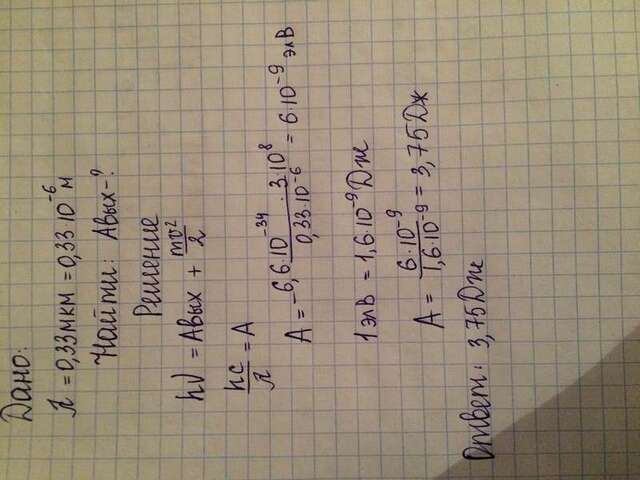 Дано:
λ = 0,33мкм = 0,33·10⁻⁶ м
Найти: Aвых-?
Решение
hν = Aвых + mv²/2
hc/λ = A
A = 6,6·10⁻³⁴·3·10⁸/0,33·10⁻⁶ = 6·10⁻⁹ элВ
1элВ = 1,6·10⁻⁹ Дж
A = 6·10⁻⁹/1,6·10⁻⁹ = 3,75Дж
Ответ: 3,75Дж